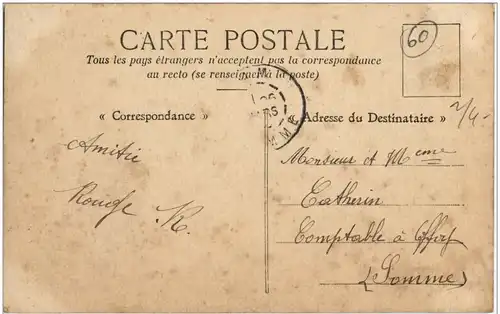 CARTE POSTALE
60
Tous les pays étrangers n'acceptent pas la correspondance
au recto (se renseigner à la poste)
« Correspondance »
Adresse du Destinataire »
Amitié
Rouge R.
Monsieur et Mme
Catherin
Comptable à
(Somme)